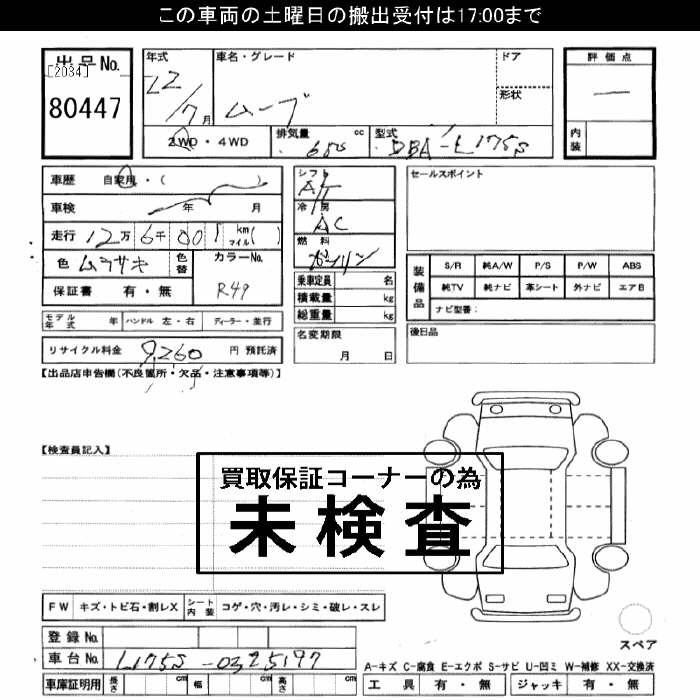 この車両の土曜日の搬出受付は17:00まで
出品No.
[2034]
80447
年式
22/7月
車名・グレード
ムーブ
ドア
形状
評価点
一
内装
2WD・4WD
排気量 cc
650
型式
DBA-L175S
車歴 自家用・( )
車検 年 月
走行 12万6千001 km マイル( )
色 ムラサキ 色替 カラーNo. R49
保証書 有・無
モデル年式 年 ハンドル 左・右 ディーラー・並行
リサイクル料金 9,260 円 預託済
シフト
AT
冷房
AC
燃料
ガソリン
乗車定員 名
積載量 kg
総重量 kg
名変期限
月 日
セールスポイント
装備品
S/R 純A/W P/S P/W ABS
純TV 純ナビ 革シート 外ナビ エアB
ナビ型番:
後日品
【出品店申告欄(不良箇所・欠品・注意事項等)】
【検査員記入】
買取保証コーナーの為
未検査
FW キズ・トビ石・割レX シート内装 コゲ・穴・汚レ・シミ・破レ・スレ
登録No.
車台No. L175S-0325197
車庫証明用 長さ cm 幅 cm 高さ cm
スペア
A-キズ C-腐食 E-エクボ S-サビ U-凹ミ W-補修 XX-交換済
工具 有・無 ジャッキ 有・無